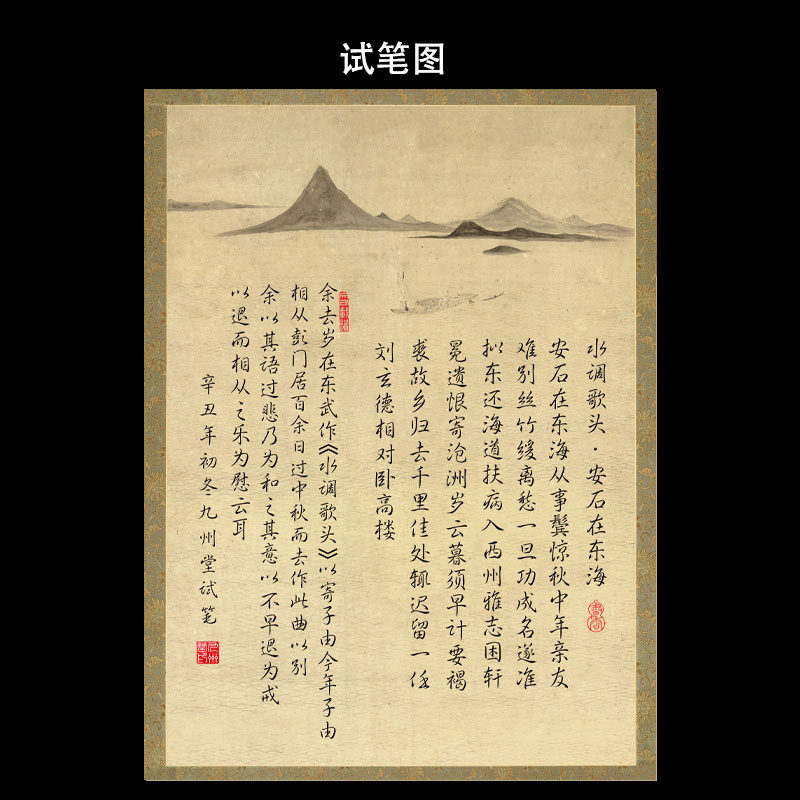 试笔图
水调歌头·安石在东海
安石在东海从事鬓惊秋中年亲友
难别丝竹缓离愁一旦功成名遂准
拟东还海道扶病入西州雅志困轩
冕遗恨寄沧洲岁云暮须早计要褐
裘故乡归去千里佳处辄迟留一任
刘玄德相对卧高楼
余去岁在东武作《水调歌头》以寄子由今年子由
相从彭门居百余日过中秋而去作此曲以别
余以其语过悲乃为和之其意以不早退为戒
以退而相从之乐为慰云耳
辛丑年初冬九州堂试笔